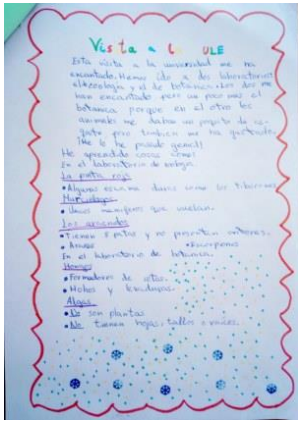 Visita a la ULE
Esta visita a la universidad me ha
encantado. Hemos ido a dos laboratorios
el zoología y el de botánica. Los dos me
han encantado pero un poco más el
botánica porque en el otro los
animales me daban un poquito de
pero también me ha gustado.
¡Me lo he pasado genial!
He aprendido cosas como:
En el laboratorio de
La
• Algunos duros como los tiburones
• Unicos mamíferos que vuelan.
Los arácnidos
• Tienen 8 patas y no presentan antenas.
• Arañas • Escorpiones
En el laboratorio de botánica.
Hongos
• Formadores de setas.
• Mohos y levaduras.
Algas
• No son plantas
• No tienen hojas, tallos o raíces.